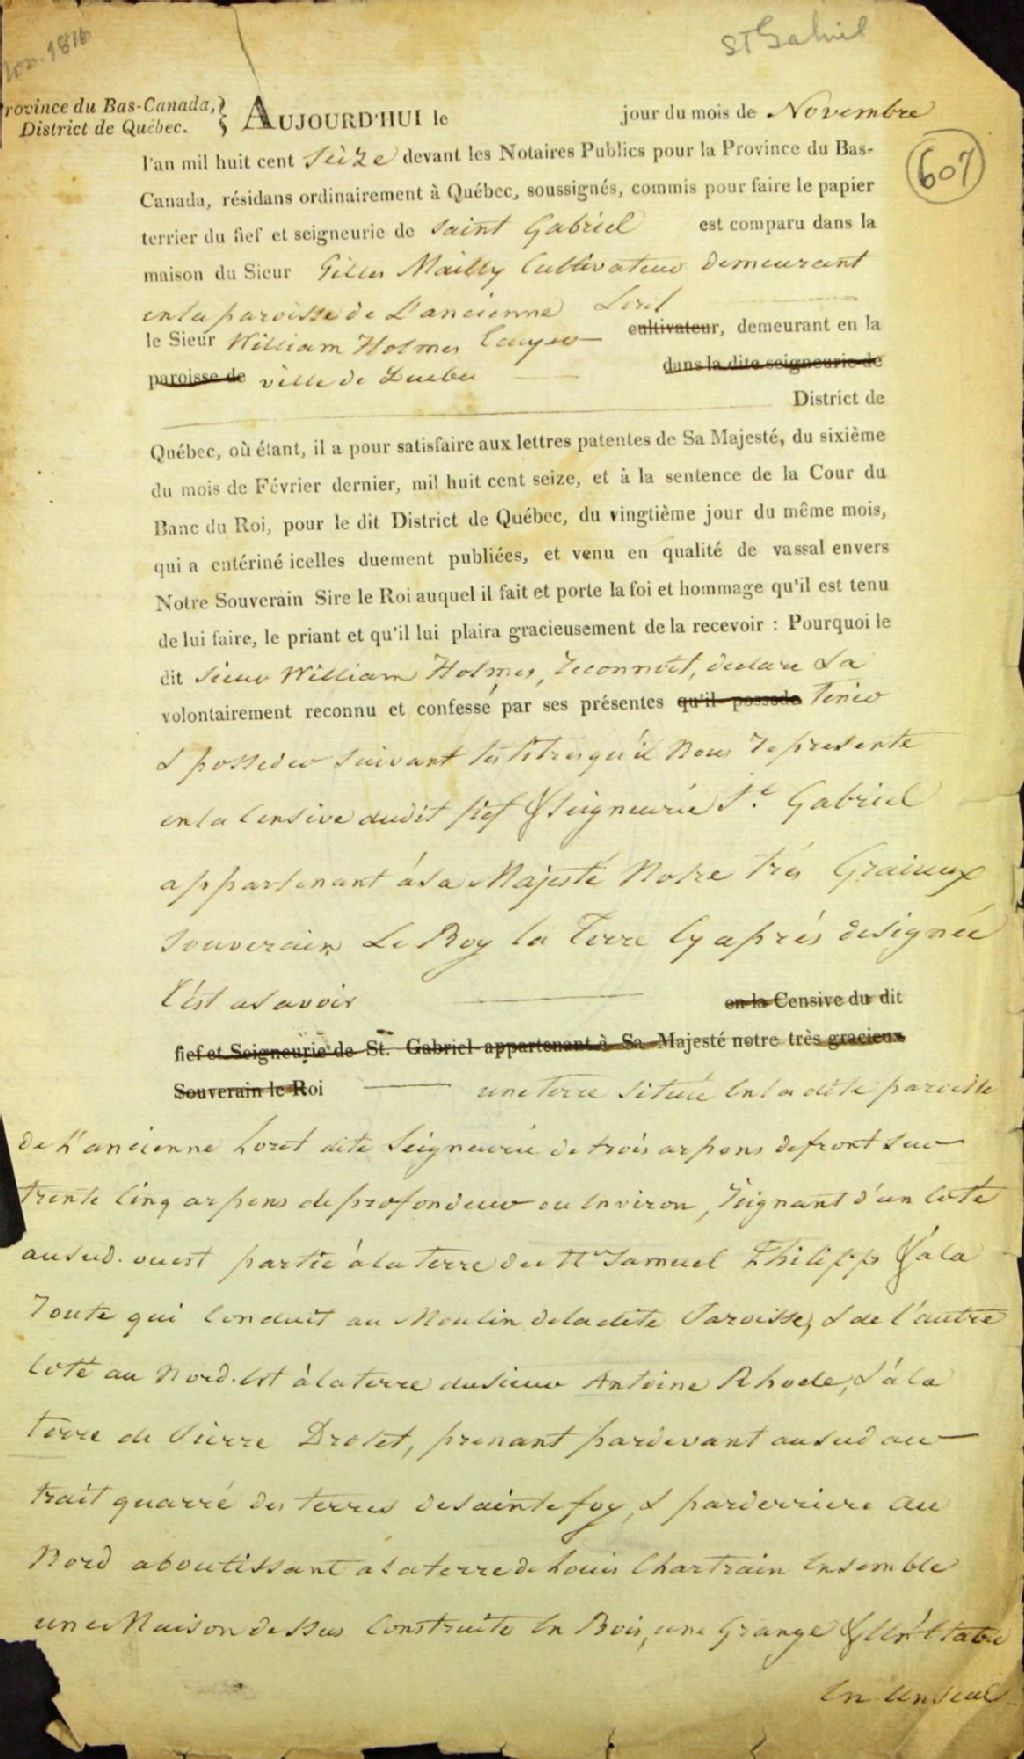 Nov. 1816
St Gabriel
Province du Bas-Canada,
District de Québec.
AUJOURD'HUI le jour du mois de Novembre
607
l'an mil huit cent Seize devant les Notaires Publics pour la Province du Bas-
Canada, résidans ordinairement à Québec, soussignés, commis pour faire le papier
terrier du fief et seigneurie de Saint Gabriel est comparu dans la
maison du Sieur Gilles Mailly Cultivateur demeurant
en la paroisse de L'ancienne Loret
le Sieur William Holmes Ecuyer cultivateur, demeurant en la
paroisse de ville de Quebec dans la dite seigneurie de
District de
Québec, où étant, il a pour satisfaire aux lettres patentes de Sa Majesté, du sixième
du mois de Février dernier, mil huit cent seize, et à la sentence de la Cour du
Banc du Roi, pour le dit District de Québec, du vingtième jour du même mois,
qui a entériné icelles duement publiées, et venu en qualité de vassal envers
Notre Souverain Sire le Roi auquel il fait et porte la foi et hommage qu'il est tenu
de lui faire, le priant et qu'il lui plaira gracieusement de la recevoir : Pourquoi le
dit Sieur William Holmes, reconnait, declare & a
volontairement reconnu et confessé par ses présentes qu'il possede Tenir
& posseder suivant les titres qu'il Nous represente
en la Censive dudit fief & Seigneurie St. Gabriel
appartenant à sa Majesté Notre trés Graieux
Souverain Le Roy la Terre Cy aprés designée
C'est asavoir en la Censive du dit
fief et Seigneurie de St. Gabriel appartenant à Sa Majesté notre très gracieux
Souverain le Roi une terre située en la dite paroisse
de L'ancienne Loret dite Seigneurie de trois arpens de front sur
trente Cinq arpens de profondeur ou Environ, Joignant d'un Coté
au sud-ouest partie à la terre de Mr Samuel Philipps & à la
route qui Conduit au Moulin de la dite Paroisse, & de l'autre
Coté au Nord-Est à la terre du Sieur Antoine Rhode, & à la
terre de Pierre Drolet, prenant pardevant au sud au
trait quarré des terres de sainte foy, & parderriere au
Nord aboutissant a la terre de Louis Chartrain Ensemble
une Maison dessus Construite En Bois, une Grange & Un Etable
En Un seul